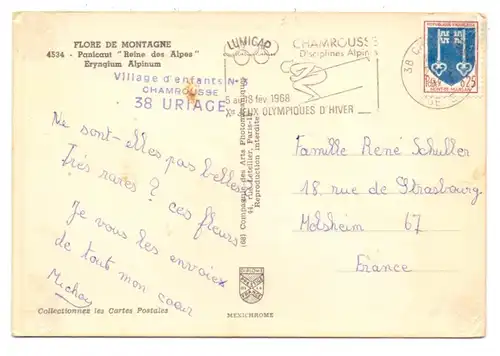 FLORE DE MONTAGNE
4534 - Panicaut "Reine des Alpes"
Eryngium Alpinum
Village d'enfants N°
CHAMROUSSE
38 URIAGE
Ne sont-elles pas belles
Très rares ? ces fleurs
Je vous les envoie
de tout mon coeur
Collectionnez les Cartes Postales
(68) Compagnie des Arts Photomécaniques
44, rue Letellier, Paris-
Reproduction interdite
MEXICHROME
CHAMROUSSE
Disciplines Alpines
5 au 18 fév. 1968
Xes JEUX OLYMPIQUES D'HIVER
38
REPUBLIQUE FRANÇAISE
0,25
MONT-DE-MARSAN
Famille René Schuller
18, rue de Strasbourg
Molsheim 67
France